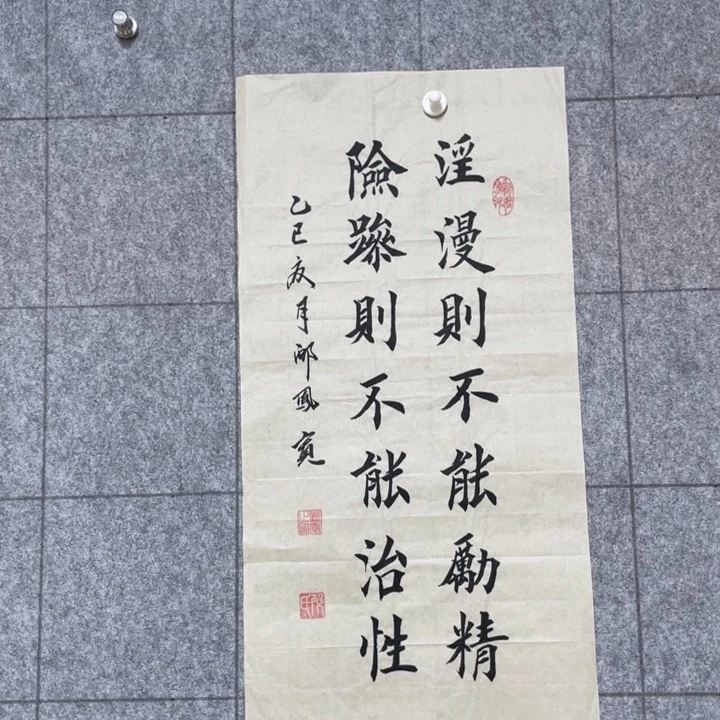 淫漫則不能勵精
險躁則不能治性
乙巳夜月邴鳳寬